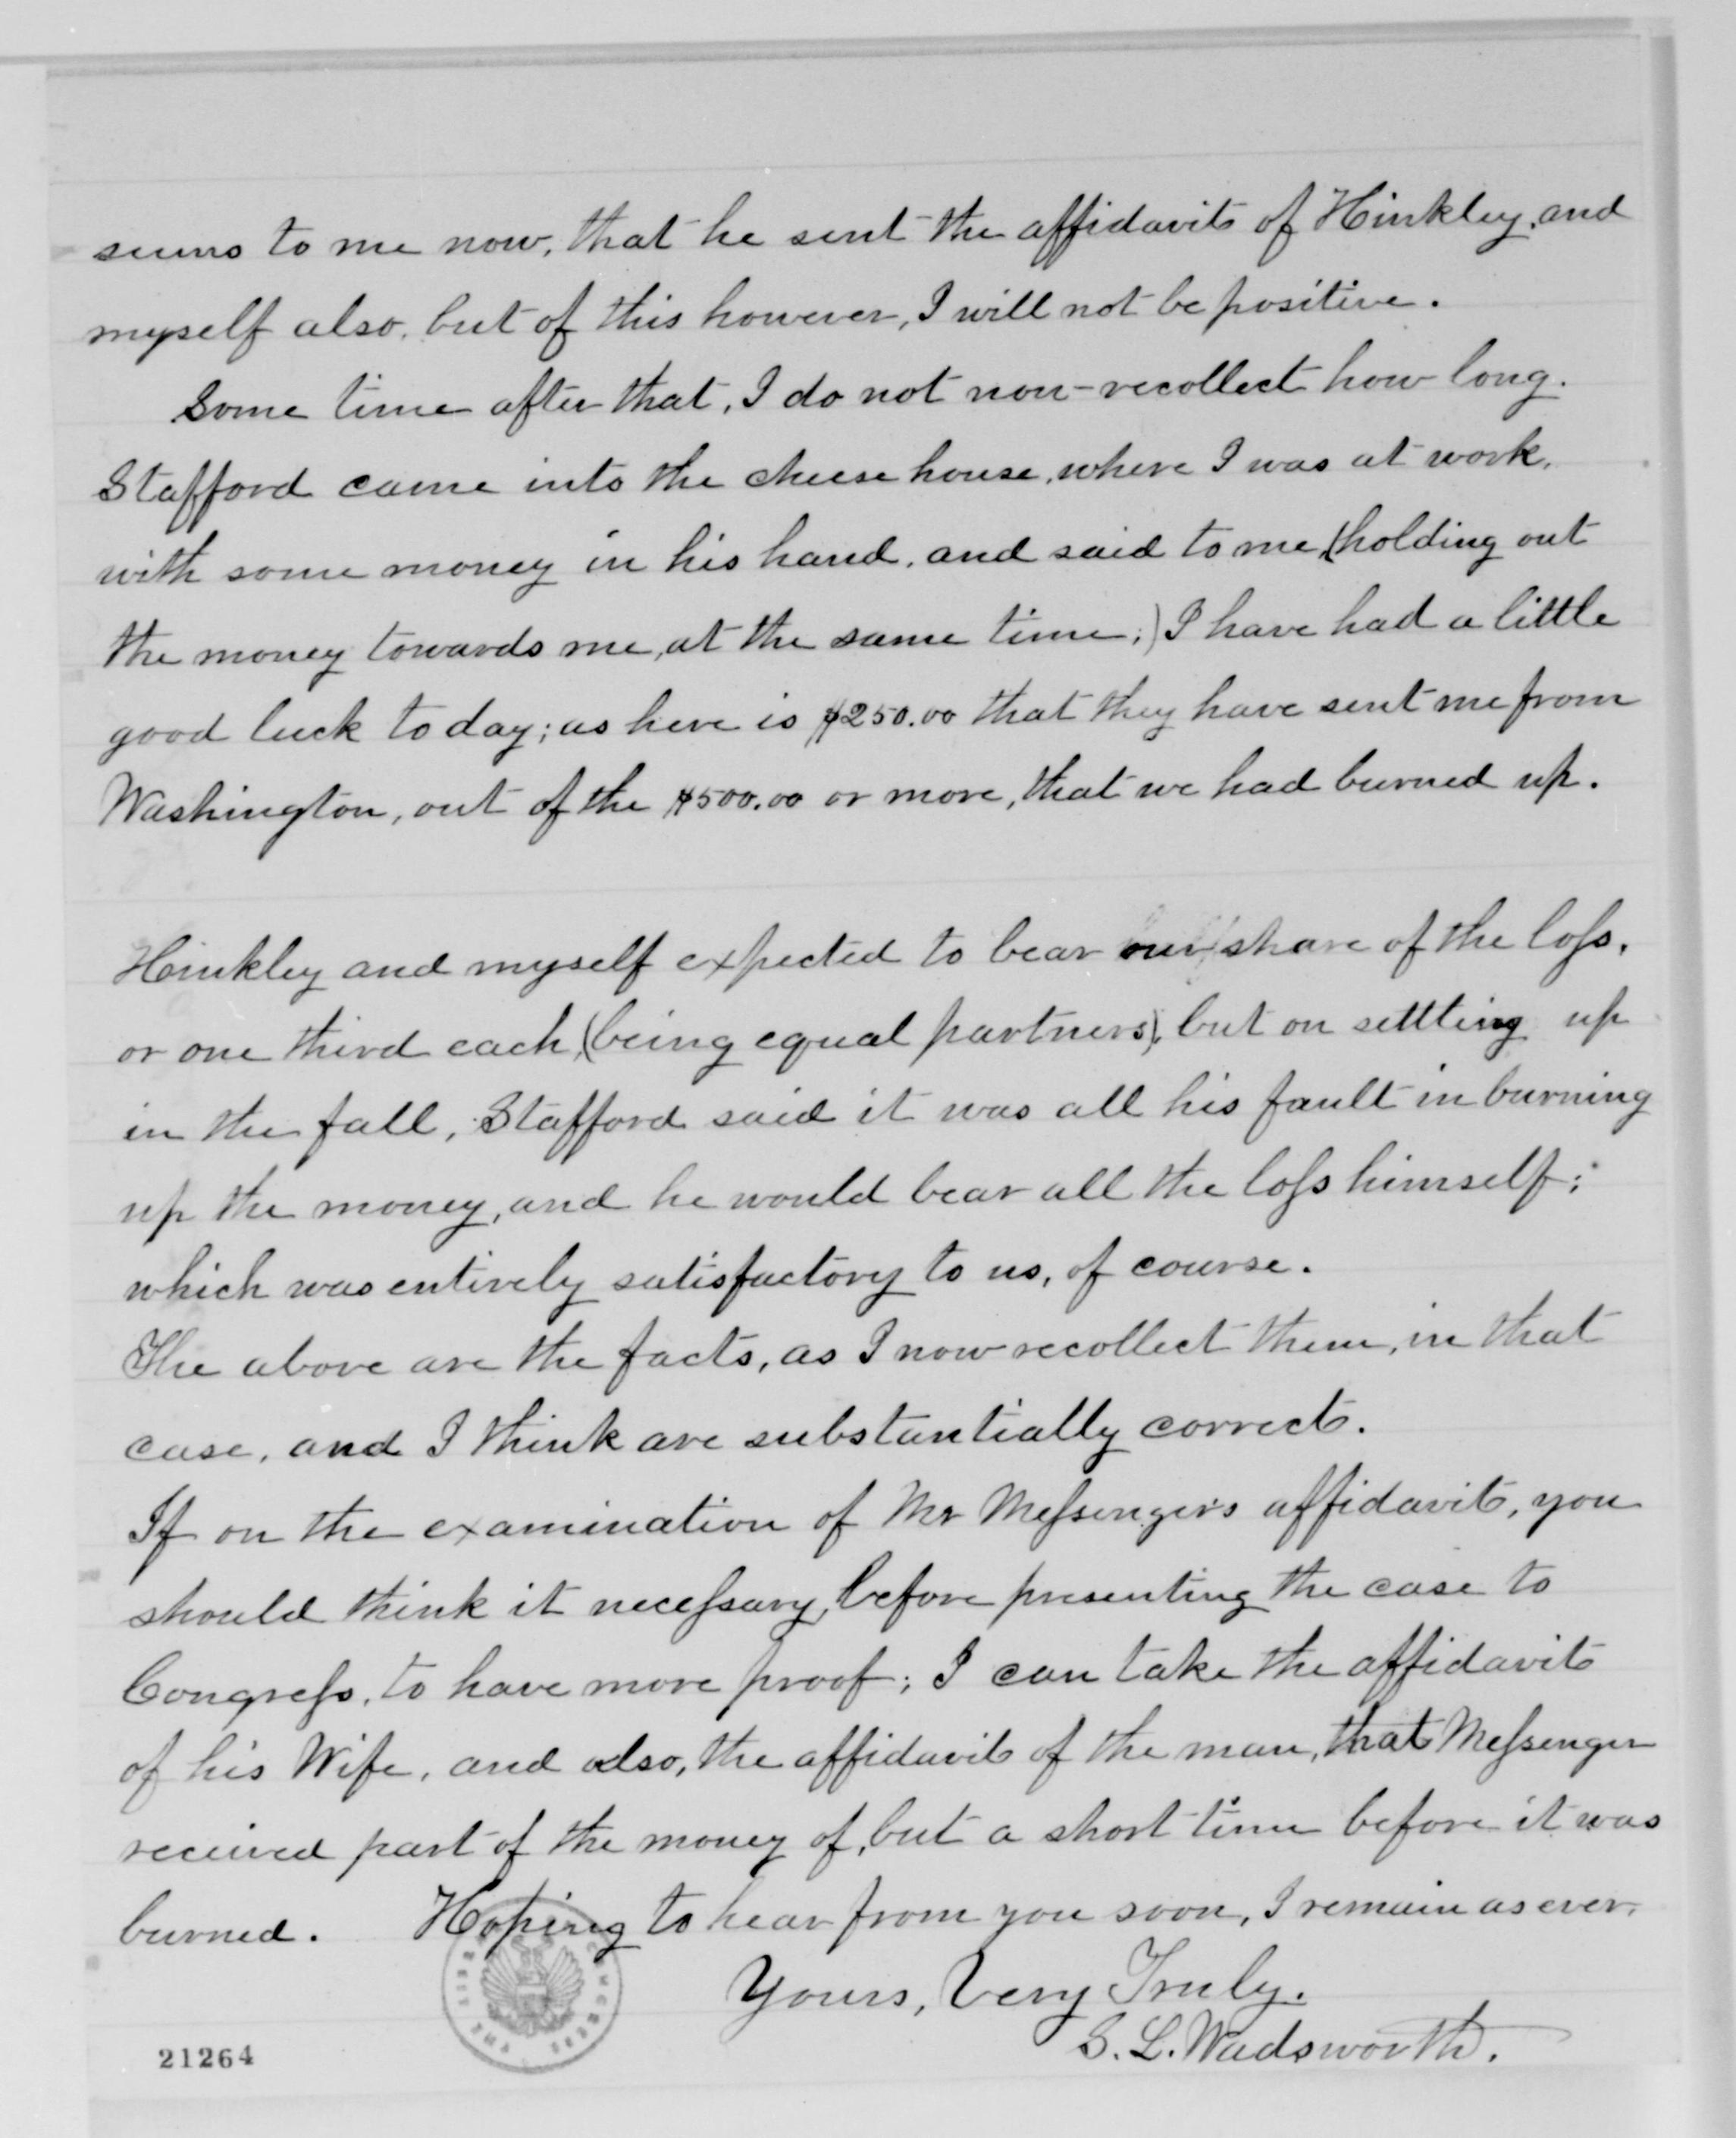 seems to me now, that he sent the affidavits of Hinkley, and
myself also, but of this however, I will not be positive.
Some time after that, I do not now recollect how long,
Stafford came into the cheese house, where I was at work,
with some money in his hand, and said to me, (holding out
the money towards me, at the same time;) I have had a little
good luck to day; as here is $250.00 that they have sent me from
Washington, out of the $500.00 or more, that we had burned up.
Hinkley and myself expected to bear our share of the loſs,
or one third each, (being equal partners), but on settling up
in the fall, Stafford said it was all his fault in burning
up the money, and he would bear all the loſs himself;
which was entirely satisfactory to us, of course.
The above are the facts, as I now recollect them, in that
case, and I think are substantially correct.
If on the examination of Mr Meſsenger's affidavit, you
should think it neceſsary, before presenting the case to
Congreſs, to have more proof; I can take the affidavit
of his Wife, and also, the affidavit of the man, that Meſsenger
received part of the money of, but a short time before it was
burned. Hoping to hear from you soon, I remain as ever,
Yours, Very Truly.
S. L. Wadsworth.
21264